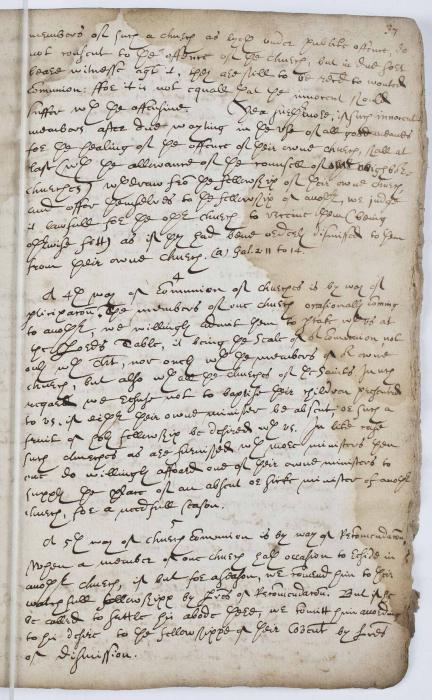 37
members of such a church as lyeth under publike offence, do
not consent to the offence of the church, but in due sort
beare witnesse agt it, they are still to be recd to wonted
communion: ffor it is not equall that the innocent should
suffer wth the offensive. Yea furthermore, if such innocent
members after due wayting in the use of all good meanes
for the healing of the offence of their owne church, shall at
last wth the allowance of the councell of neighbor
churches, withdraw from the fellowship of their owne church
and offer themselves to the fellowship of anothr, we judge
it lawfull for the othr church to receive them (being
otherwise fitt) as if they had bene orderly dismissed to them
from their owne church. (a) Gal. 2 11 to 14.
4
A 4th way of Communion of churches is by way of
pticipation, the members of one church occasionally coming
to anothr, we willingly admit them to ptake wth us at
the Lords Table, it being the seale of or Communion not
only wth Christ, nor only wth the members of or owne
church, but also wth all the churches of the Saints: in wch
regard, we refuse not to baptise their children presented
to us, if either their owne minister be absent, or such a
fruit of holy fellowship be desired wth us. In like case
such churches as are furnished wth more ministers then
one, do willingly afford one of their owne ministers to
supply the place of an absent or sicke minister of anothr
church, for a needfull season.
5
A 5th way of church Communion is by way of Recomendation
When a member of one church hath occasion to reside in
anothr church, if but for a season, we comend him to their
watchfull fellowshipp by Lrēs of Recomendation. But if he
be called to settle his abode there, we comitt him according
to his desire to the fellowshippe of their Covent by Lrēs
of dismission.